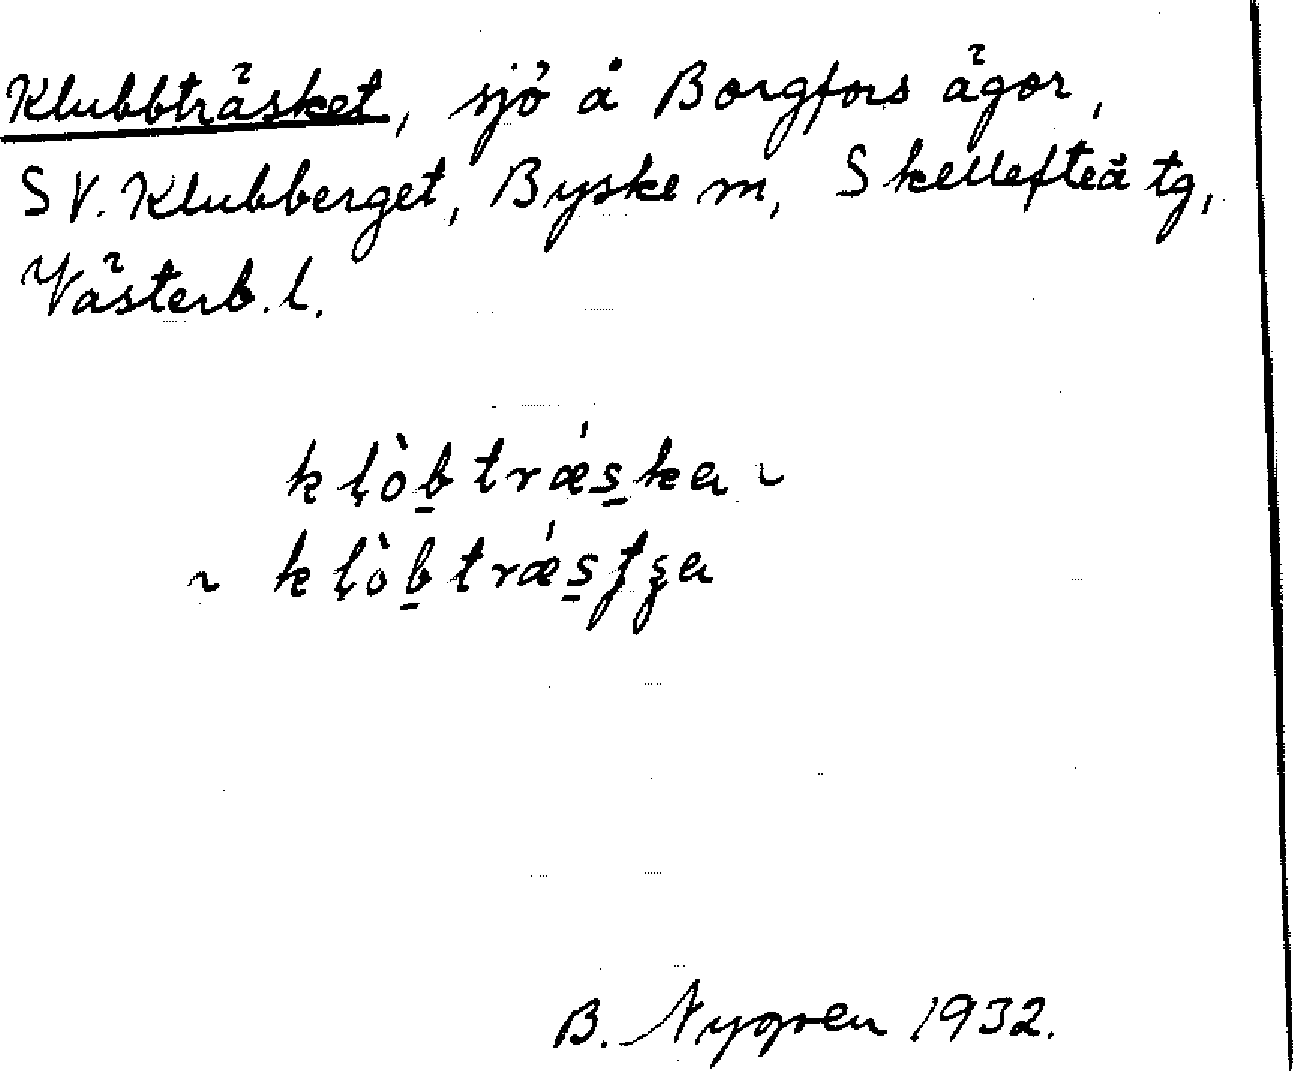 Klubbträsket, sjö å Borgfors ägor,
SV. Klubberget, Byske m, Skellefteå tg,
Västerb. l.
kḷòb̲trǽs̲ka ~
~ kḷòb̲trǽs̲tʂa
B. Nygren 1932.